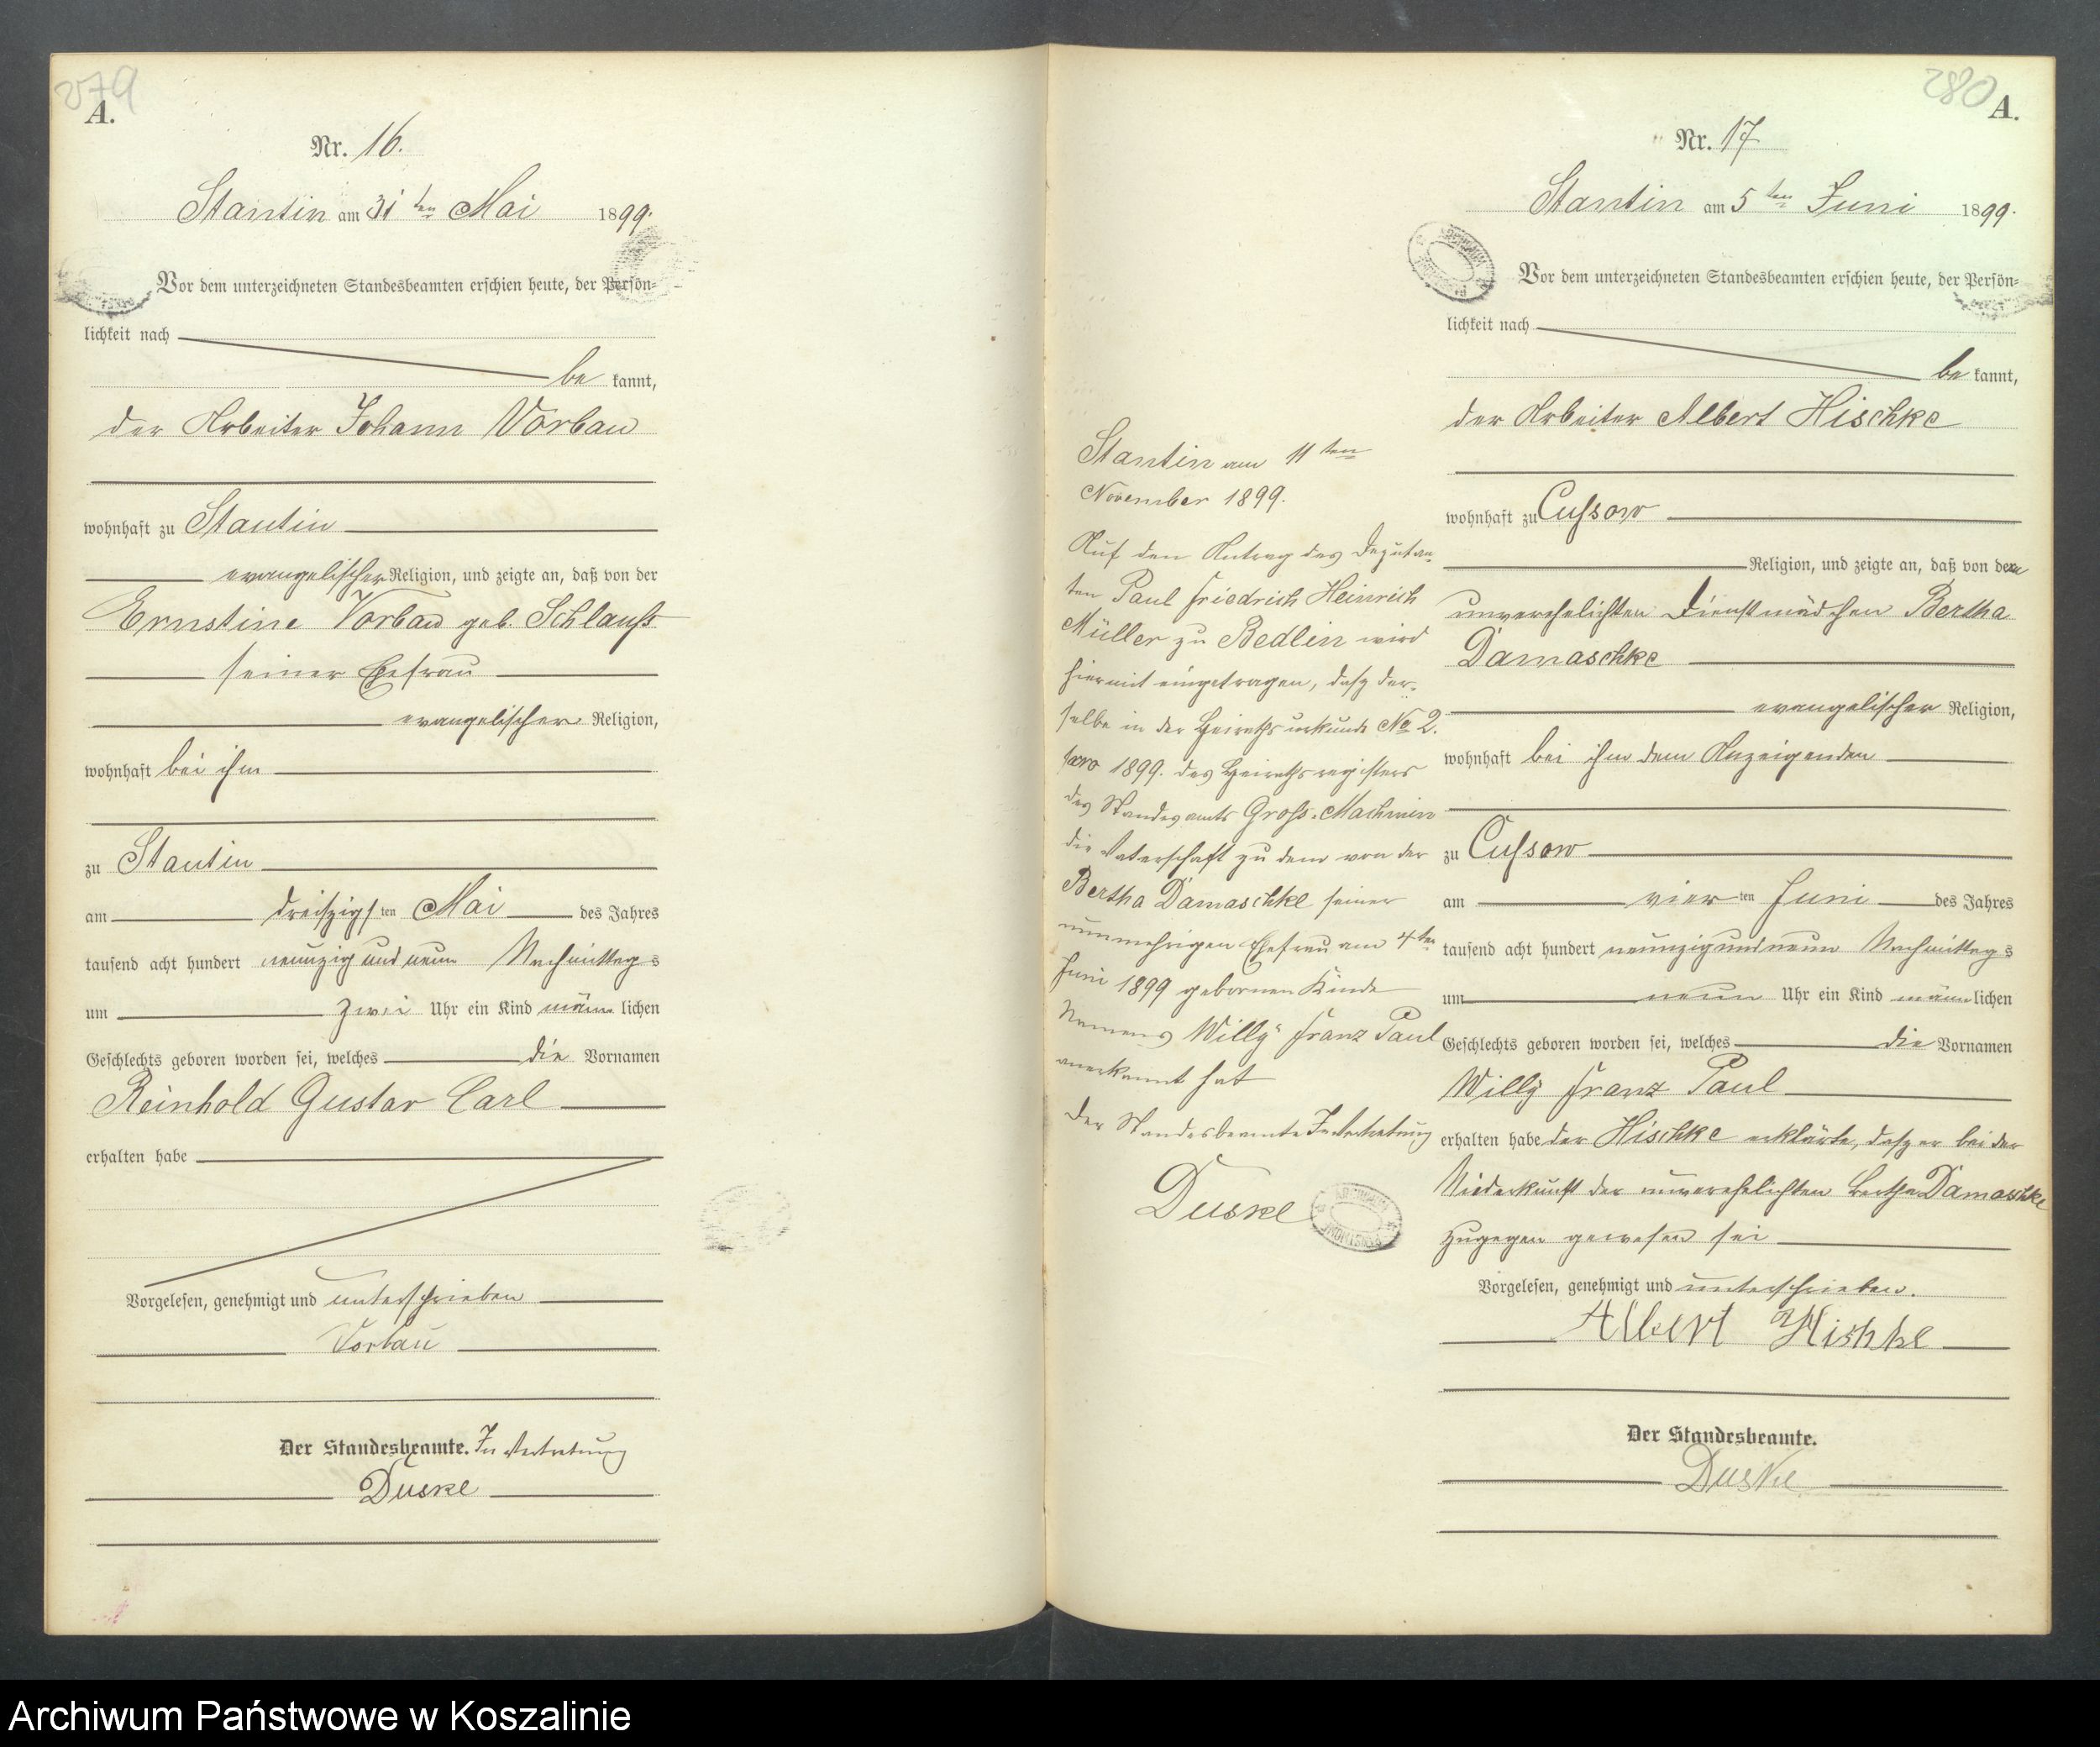 279
A.
Nr. 16.
Stantin am 31ten Mai 1899.
Vor dem unterzeichneten Standesbeamten erschien heute, der Persön-
lichkeit nach
bekannt,
der Arbeiter Johann Vorbau
wohnhaft zu Stantin
evangelischer Religion, und zeigte an, daß von der
Ernstine Vorbau geb. Schlauß
seiner Ehefrau
evangelischer Religion,
wohnhaft bei ihm
zu Stantin
am dreißigsten Mai des Jahres
tausend acht hundert neunzig und neun Nachmittags
um zwei Uhr ein Kind männlichen
Geschlechts geboren worden sei, welches die Vornamen
Reinhold Gustav Carl
erhalten habe
Vorgelesen, genehmigt und unterschrieben
Vorbau
Der Standesbeamte. In Vertretung
Duske
280
A.
Nr. 17
Stantin am 5ten Juni 1899.
Vor dem unterzeichneten Standesbeamten erschien heute, der Persön-
lichkeit nach
bekannt,
der Arbeiter Albert Hischke
wohnhaft zu Cussow
Religion, und zeigte an, daß von der
unverehelichten Dienstmädchen Bertha
Damaschke
evangelischer Religion,
wohnhaft bei ihm dem Anzeigenden
zu Cussow
am vierten Juni des Jahres
tausend acht hundert neunzig und neun Nachmittags
um neun Uhr ein Kind männlichen
Geschlechts geboren worden sei, welches die Vornamen
Willy Franz Paul
erhalten habe der Hischke erklärte, daß er bei der
Niederkunft der unverehelichten Bertha Damaschke
zugegen gewesen sei
Vorgelesen, genehmigt und unterschrieben.
Albert Hischke
Der Standesbeamte.
Duske
Stantin am 11ten
November 1899.
Auf den Antrag des Deputan-
ten Paul Friedrich Heinrich
Müller zu Bedlin wird
hiermit eingetragen, daß der-
selbe in der Heirathsurkunde No 2.
pro 1899. des Heirathsregisters
des Standesamts Groß-Machmin
die Vaterschaft zu dem von der
Bertha Damaschke seiner
nunmehrigen Ehefrau am 4ten
Juni 1899 gebornen Kinde
Namens Willy Franz Paul
anerkannt hat
Der Standesbeamte In Vertretung
Duske
Archiwum Państwowe w Koszalinie